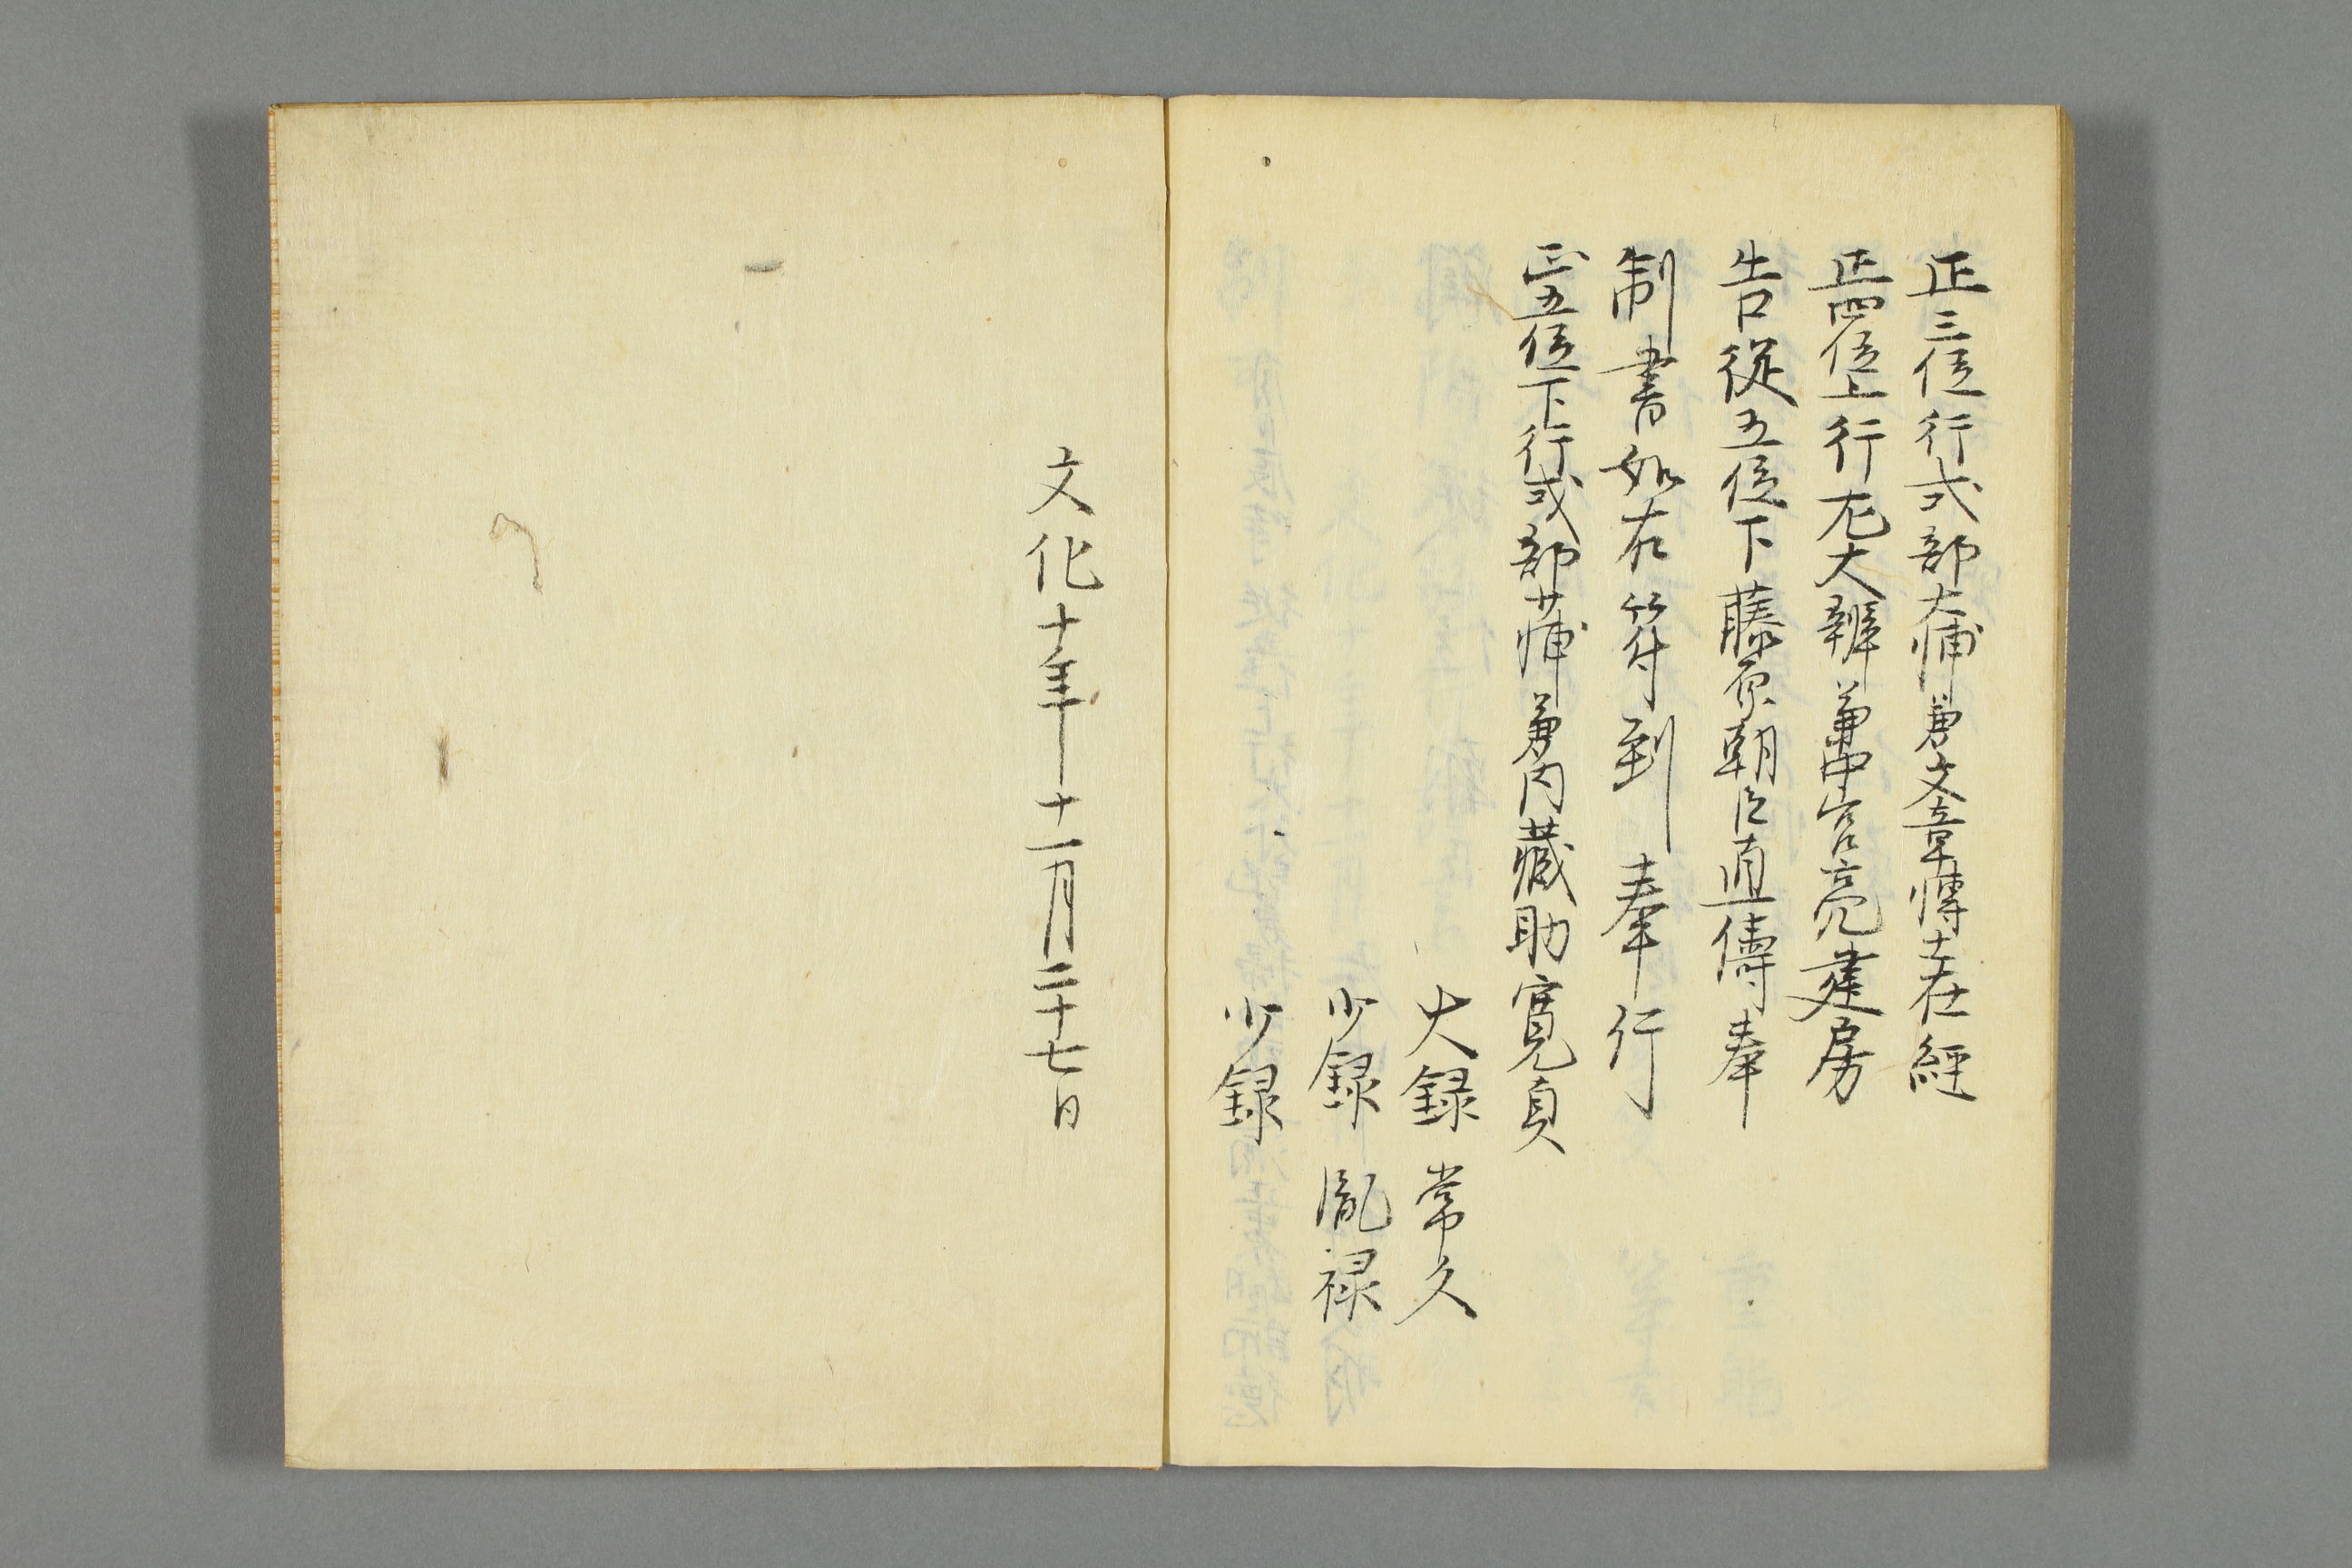 正三位行式部大輔兼文章博士在經
正四位上行左大辨兼中宮亮建房
告從五位下藤原朝臣直儔奉
制書如右符到奉行
正五位下行式部少輔兼内藏助寛貞
大録常久
少録胤禄
少録
文化十年十一月二十七日